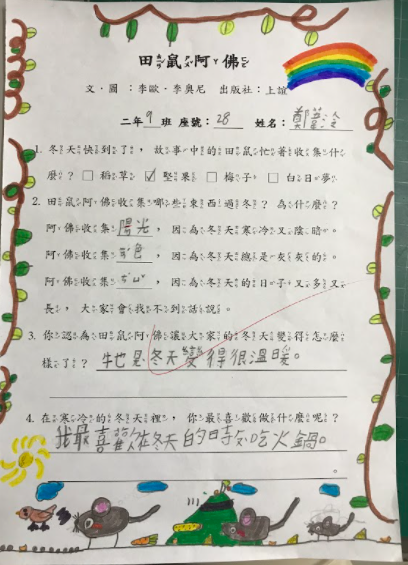 田鼠阿佛
文·圖：李歐·李奧尼　出版社：上誼
二年 9 班 座號： 28 姓名：鄭
1. 冬天快到了，故事中的田鼠忙著收集什
麼？ □ 稻草 ☑ 堅果 □ 梅子 □ 白日夢
2. 田鼠阿佛收集哪些東西過冬？為什麼？
阿佛收集 陽光 ，因為冬天寒冷又陰暗。
阿佛收集 ㄙㄜˋ色 ，因為冬天總是灰灰的。
阿佛收集 ㄗˋㄩˇ ，因為冬天的日子又多又
長，大家會找不到話說。
3. 你認為田鼠阿佛讓大家的冬天變得怎麼
樣了？ 牠是冬天變得很溫暖。
4. 在寒冷的冬天裡，你最喜歡做什麼呢？
我最喜歡在冬天的時候吃火鍋。
。